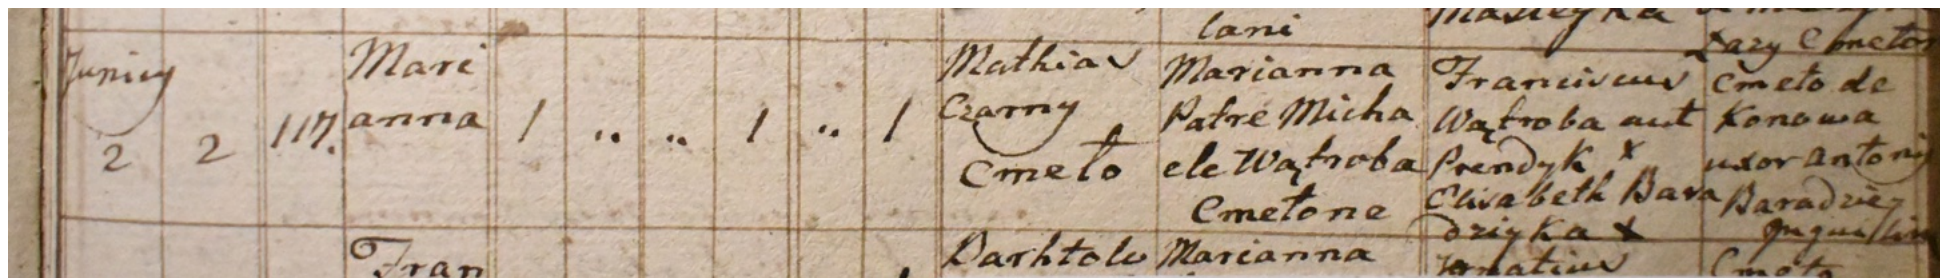 lani
Lazy Cmeton
Juniy
2
2
117.
Mari
anna
1 " " 1 " 1
Mathias
Czarny
Cmeto
Marianna
Patre Micha
ele Wątroba
Cmetone
Franciscus
Wątroba aut
Prendyk x
Elisabeth Bara
dziyka x
Cmeto de
Konowa
uxor Antoniy
Baradziey
Inquilin
Fran
Barhtolo
Marianna
Ignatius
Cmeto